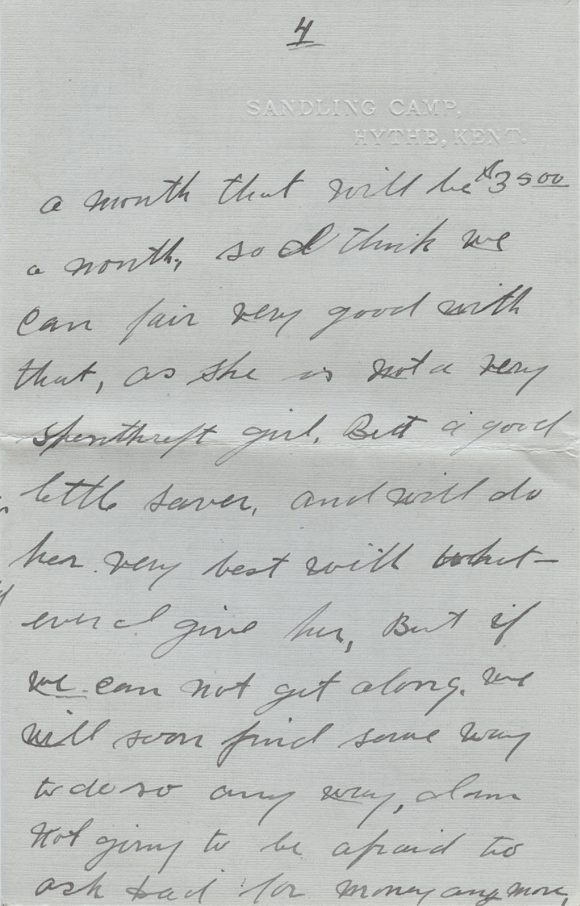 4
SANDLING CAMP,
HYTHE, KENT.
a month that will be $3500
a month, so I think we
can fair very good with
that, as she is not a very
spenthrift girl. But a good
little saver, and will do
her very best with what-
ever I give her, But if
we can not get along. we
will soon find some way
to do so any way, I am
not going to be afraid to
ask Dad for money any more,